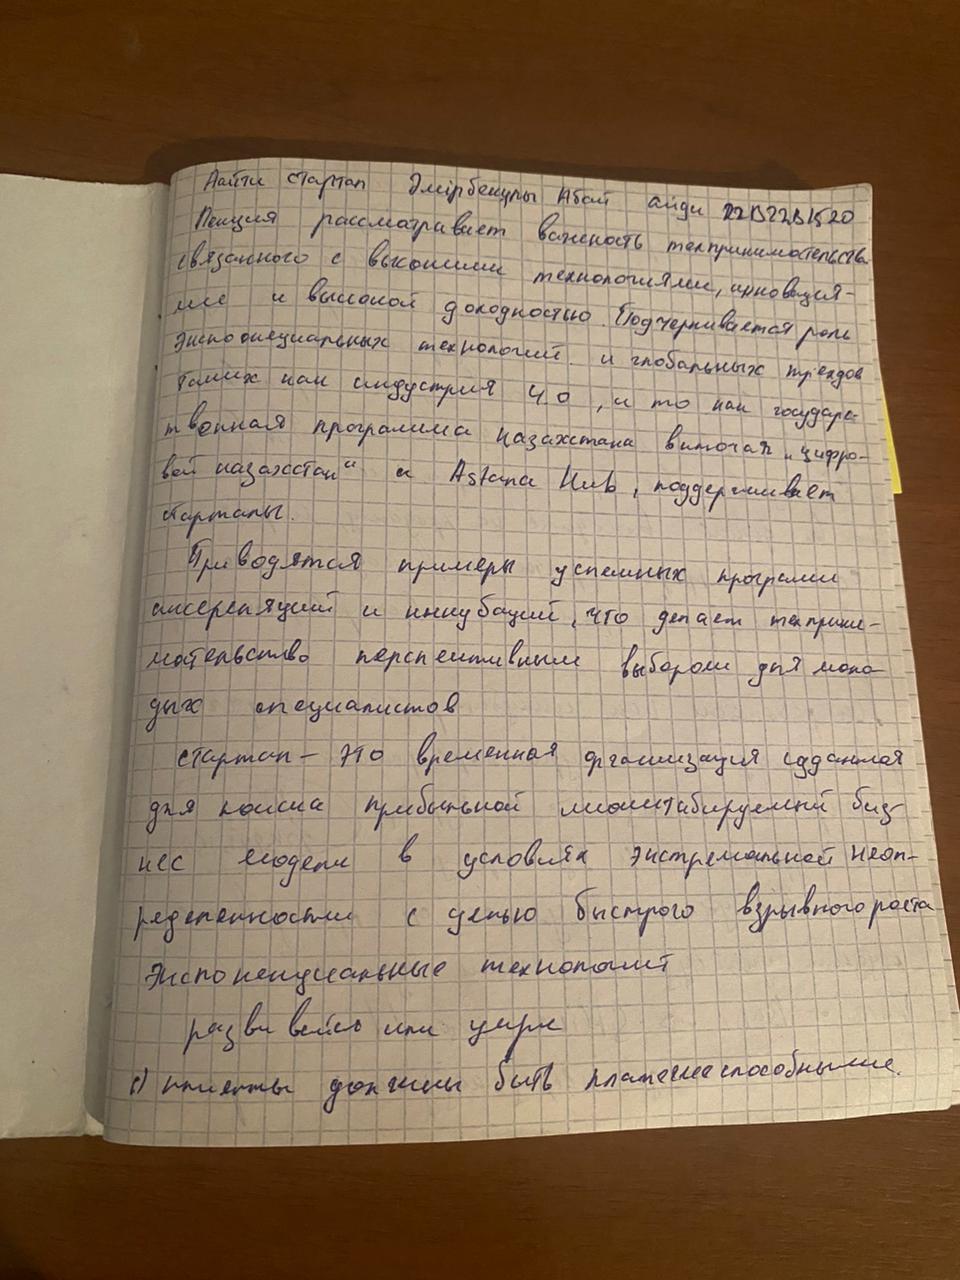 Айти стартап Әмірбекұлы Абай айди 22B22B1520
Лекция рассматривает важность техпринимательства
связанного с высокими технологиями, инновация-
ми и высокой доходностью. Подчеркивается роль
экспоненциальных технологий и глобальных трендов
таких как индустрия 4 0, и то как государс-
твенная программа Казахстана включая „цифро-
вой казахстан“ и Astana Hub, поддерживает
стартапы.
Приводятся примеры успешных программ
акселерации и инкубаций, что делает техприни-
мательство перспективным выбором для моло-
дых специалистов
стартап – это временная организация созданная
для поиска прибыльной масштабируемой биз-
нес модели в условиях экстремальной неоп-
ределенности с целью быстрого взрывного роста
Экспоненциальные технологии
развивайсь или умри
с) клиенты должны быть платежеспособными.